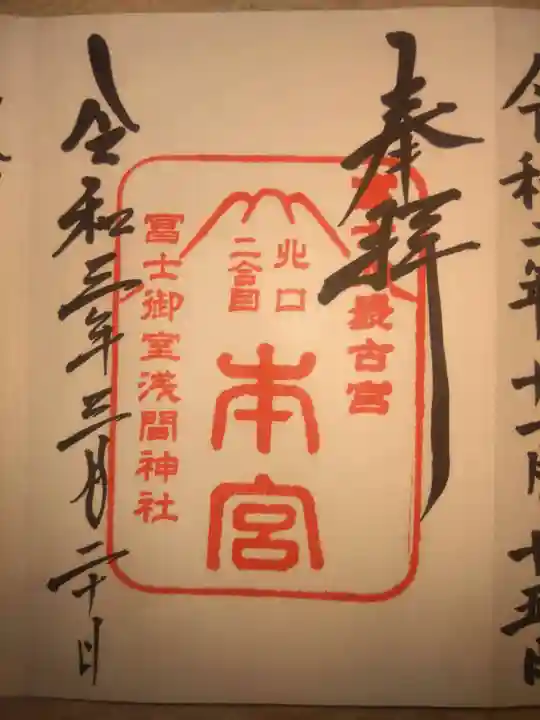 令和二年十一月十五日
奉拝
最古宮
北口
二合目
本宮
冨士御室浅間神社
令和三年三月二十日